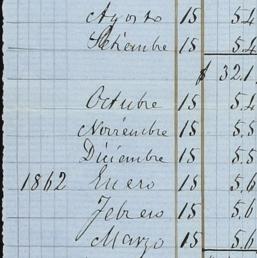 Agosto 15 5.4
Setiembre 15 5.4
$ 32.1
Octubre 15 5.4
Noviembre 15 5.5
Diciembre 15 5.5
1862 Enero 15 5.6
Febrero 15 5.6
Marzo 15 5.6